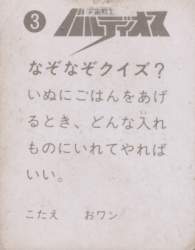 3
宇宙戦士
バルディオス
なぞなぞクイズ?
いぬにごはんをあげ
るとき、どんな入れ
ものにいれてやれば
いい。
こたえ おワン